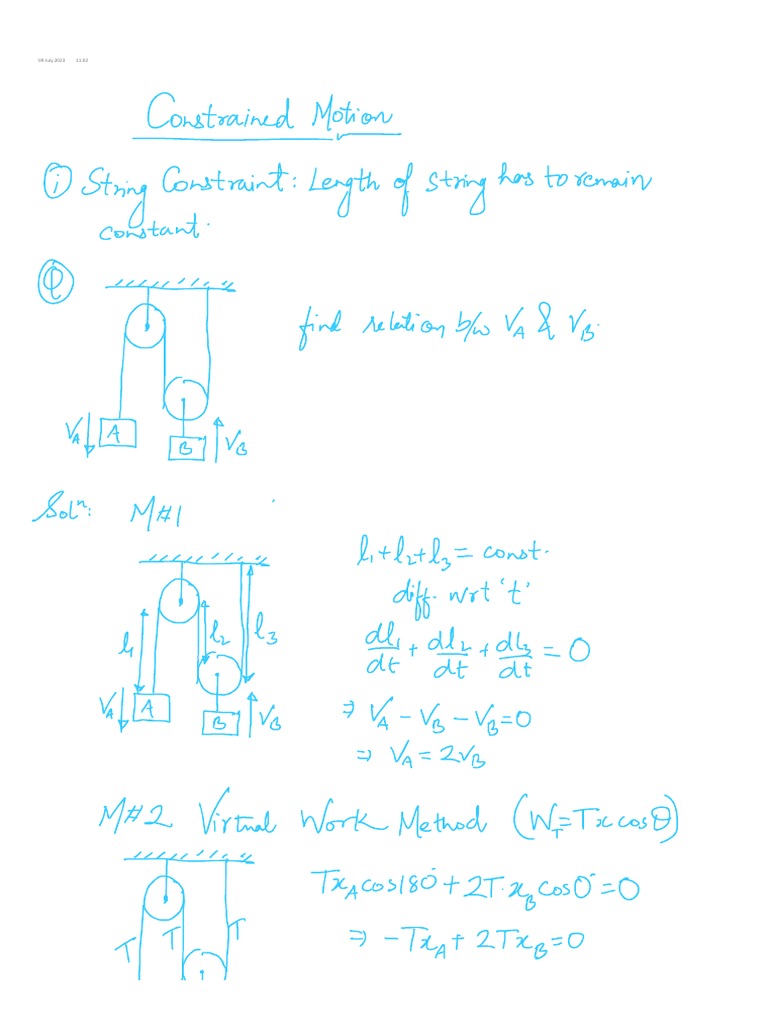 08 July 2023 11:02
Constrained Motion
① String Constraint: Length of string has to remain
constant.
Q
find relation b/w VA & VB.
VA A B VB
Solⁿ: M#1
l1+l2+l3 = const.
diff. wrt 't'
dl1/dt + dl2/dt + dl3/dt = 0
l1 l2 l3
VA A B VB
⇒ VA - VB - VB = 0
⇒ VA = 2VB
M#2 Virtual Work Method (WT = Tx cosθ)
TxA cos180° + 2T·xB cos0° = 0
T T T
⇒ -TxA + 2TxB = 0